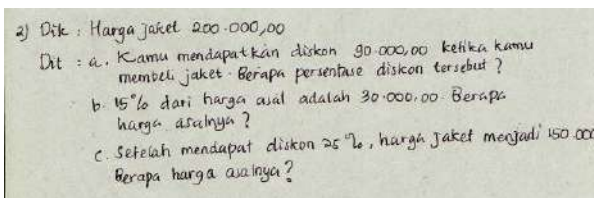 2) Dik : Harga Jaket 200.000,00
Dit : a. Kamu mendapatkan diskon 90.000,00 ketika kamu
membeli jaket. Berapa persentase diskon tersebut ?
b. 15% dari harga asal adalah 30.000,00. Berapa
harga asalnya ?
c. Setelah mendapat diskon 25%, harga jaket menjadi 150.000
Berapa harga asalnya ?